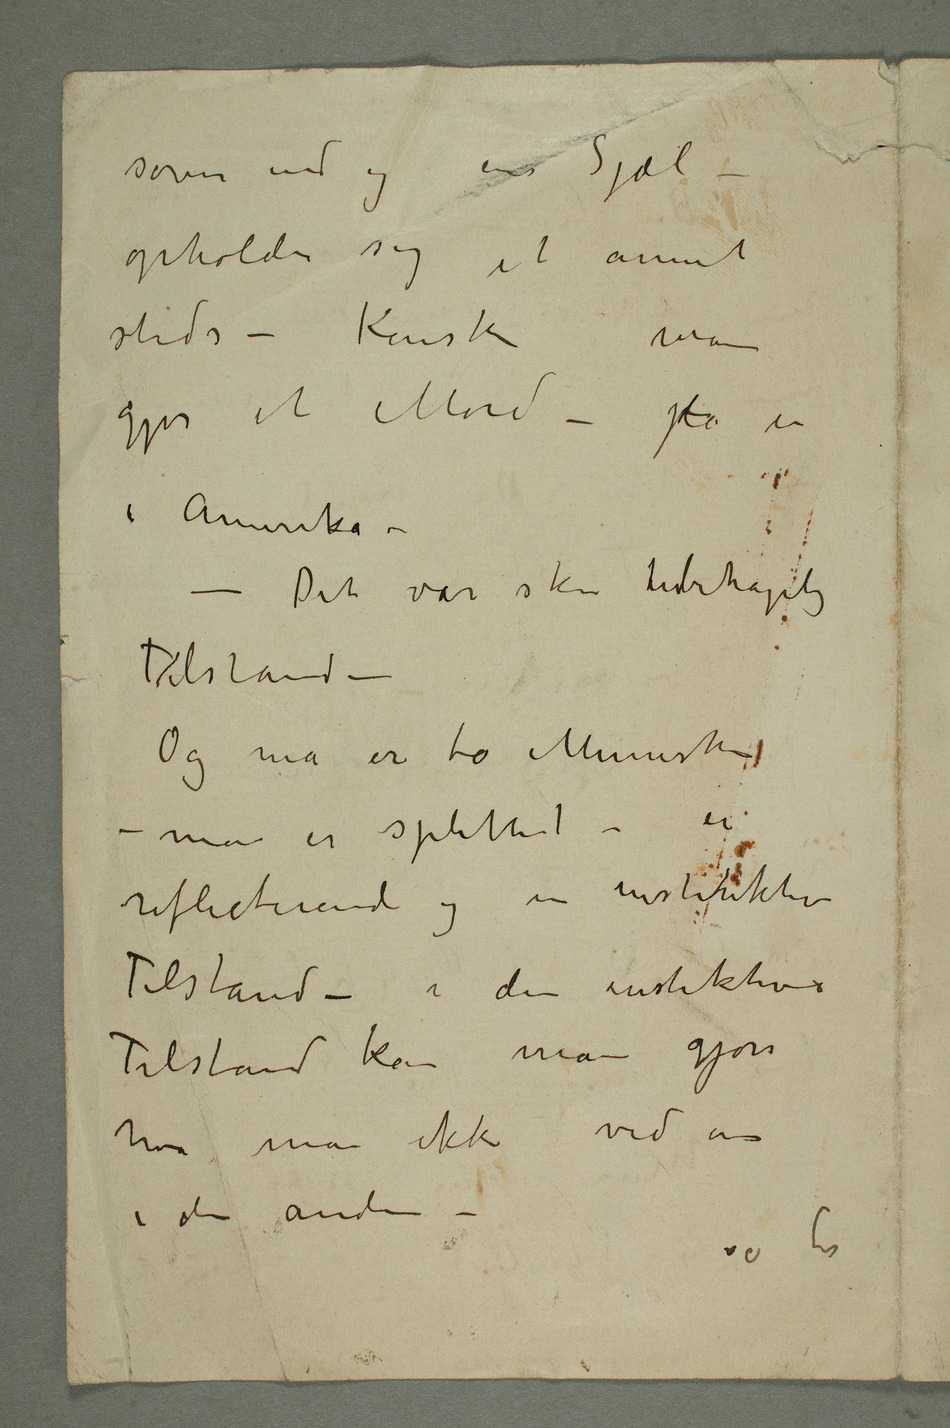 sover ind og ens Sjæl –
opholder sig et annet
steds – Kanske man
gjør et Mord – på en
i Amerika –
— Det var sku ubehagelig
Tilstand –
Og man er to Mennesker
– man er splittet – en
reflecterende og en instinktiv
Tilstand – i den instiktive
Tilstand kan man gjøre
hva man ikke ved om
i den anden –